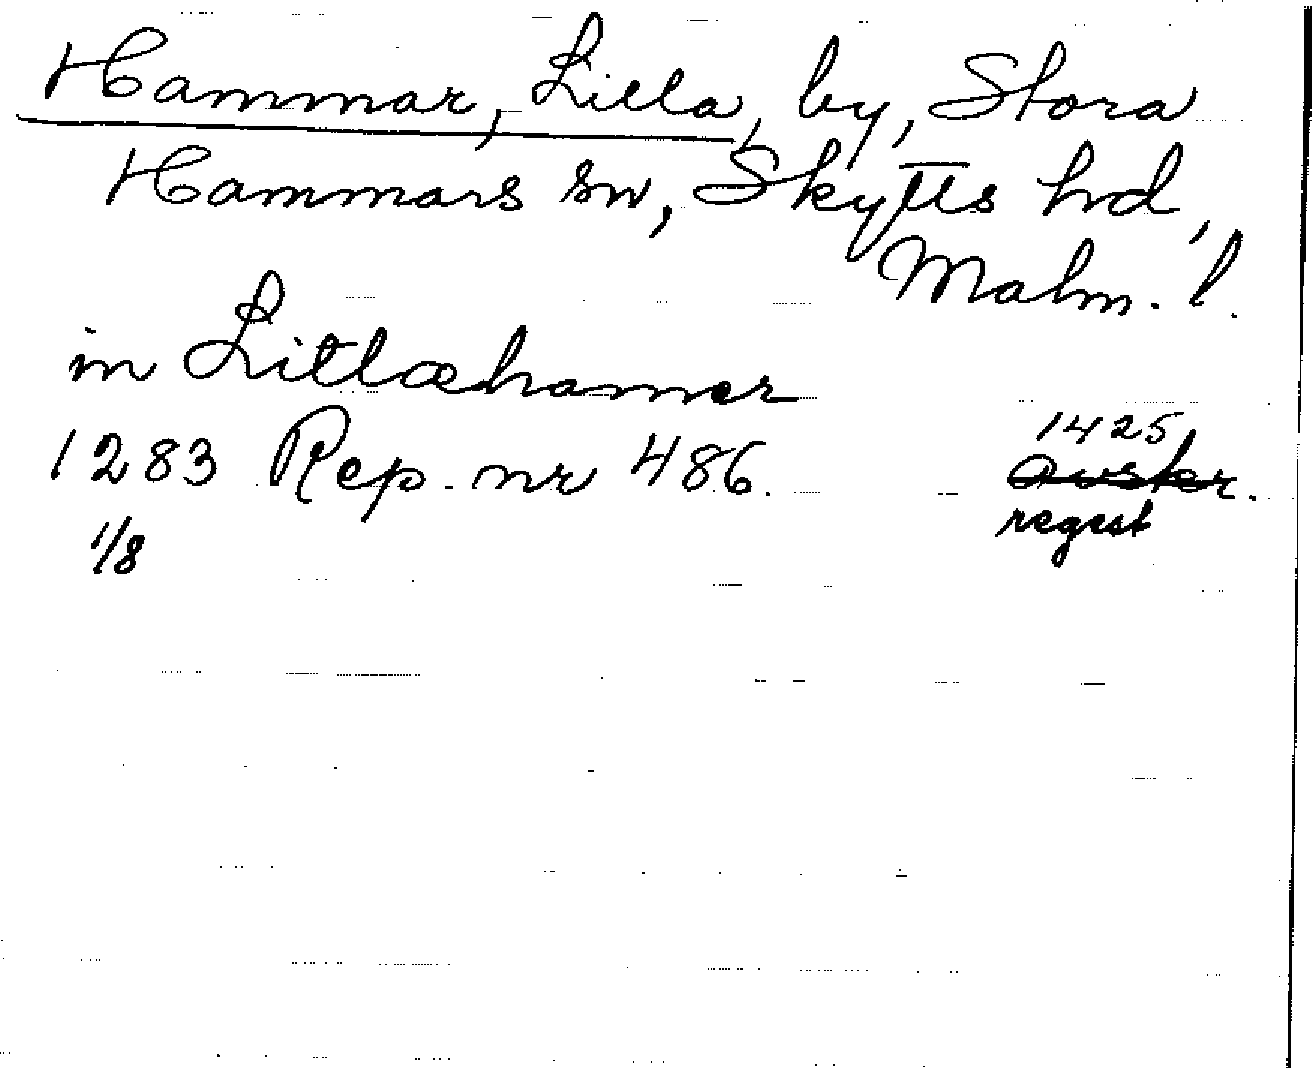 Hammar, Lilla, by, Stora
Hammars sn, Skytts hd,
Malm. l.
in Litlæhamer
1283 Rep. nr 486.
1/8
1425
avskr.
regest